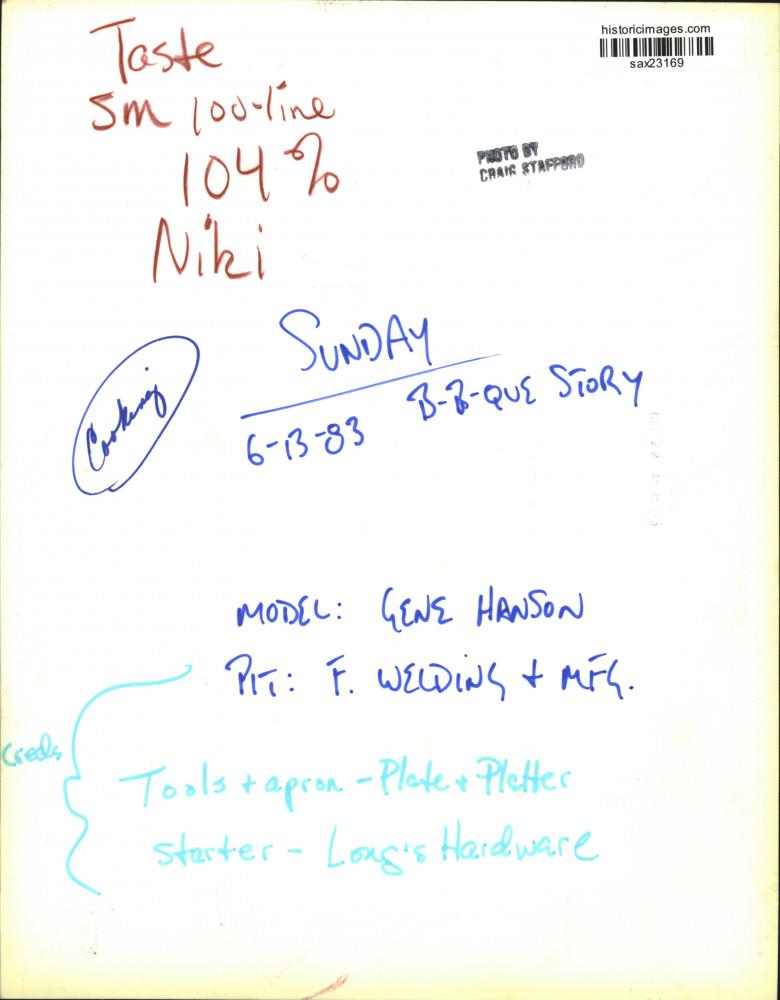 historicimages.com
sax23169
Taste
Sm 100-line
104%
Niki
PHOTO BY
CRAIG STAFFORD
SUNDAY
Cooking
6-13-83 B-B-QUE STORY
MODEL: GENE HANSON
PIT: F. WELDING + MFG.
Creds
Tools + apron - Plate + Platter
starter - Long's Hardware